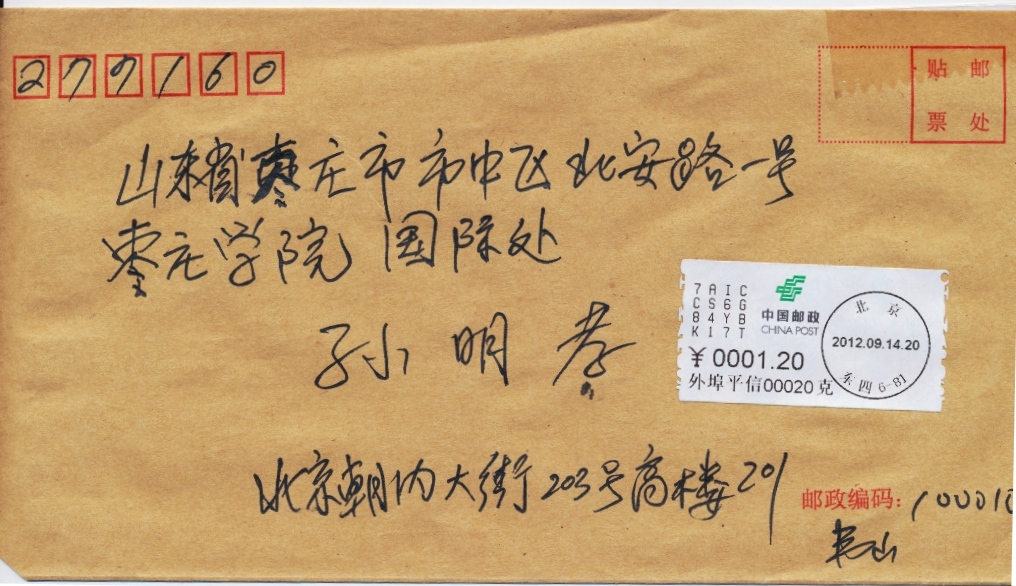 277160
贴 邮
票 处
山东省枣庄市市中区北安路一号
枣庄学院 国际处
孙明
7AIC
CS6G
84YB
KI7T
中国邮政
CHINA POST
¥0001.20
外埠平信00020克
北京
2012.09.14.20
东四6-81
北京朝内大街203号高楼201
邮政编码:10001